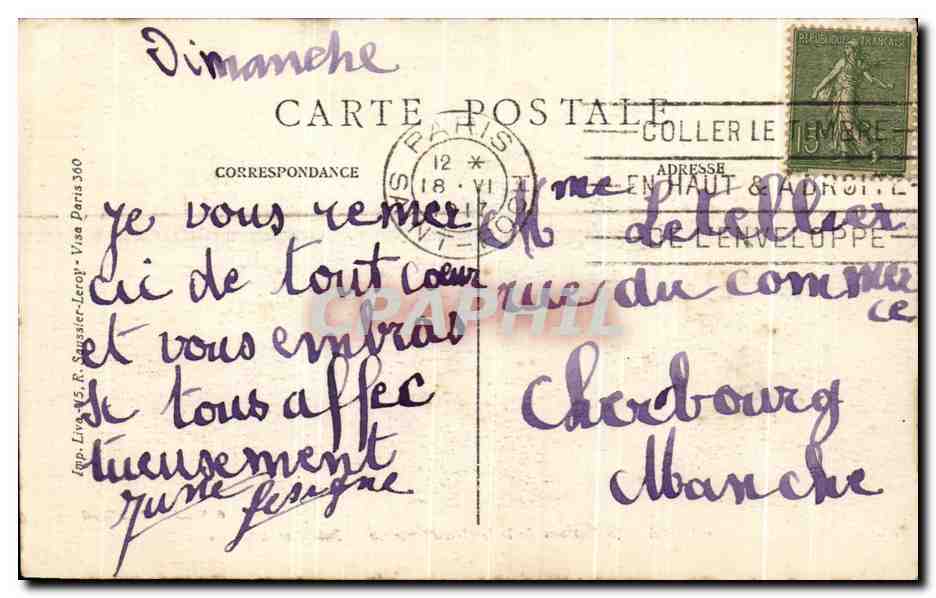 Dimanche
CARTE POSTALE
REPUBLIQUE FRANÇAISE
15
PARIS
12 *
18 · VI
17
COLLER LE TIMBRE
EN HAUT & A DROITE
DE L'ENVELOPPE
CORRESPONDANCE
ADRESSE
je vous remer
cie de tout coeur
et vous embras
se tous affec
tueusement
Mme Letellier
rue du commer
ce
Cherbourg
Manche
CPAPHIL
Imp. Liva.-V5. R. Saussier-Leroy - Visa Paris 360